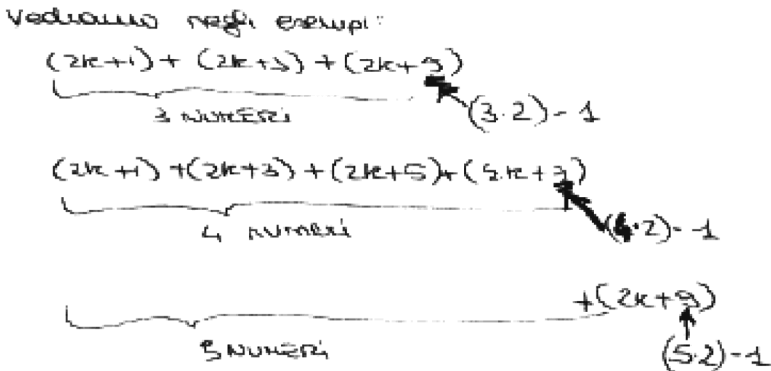 Vediamo negli esempi:
(2k+1) + (2k+3) + (2k+5)
3 NUMERI
(3·2)-1
(2k+1) + (2k+3) + (2k+5) + (2k+7)
4 NUMERI
(4·2)-1
+(2k+9)
5 NUMERI
(5·2)-1